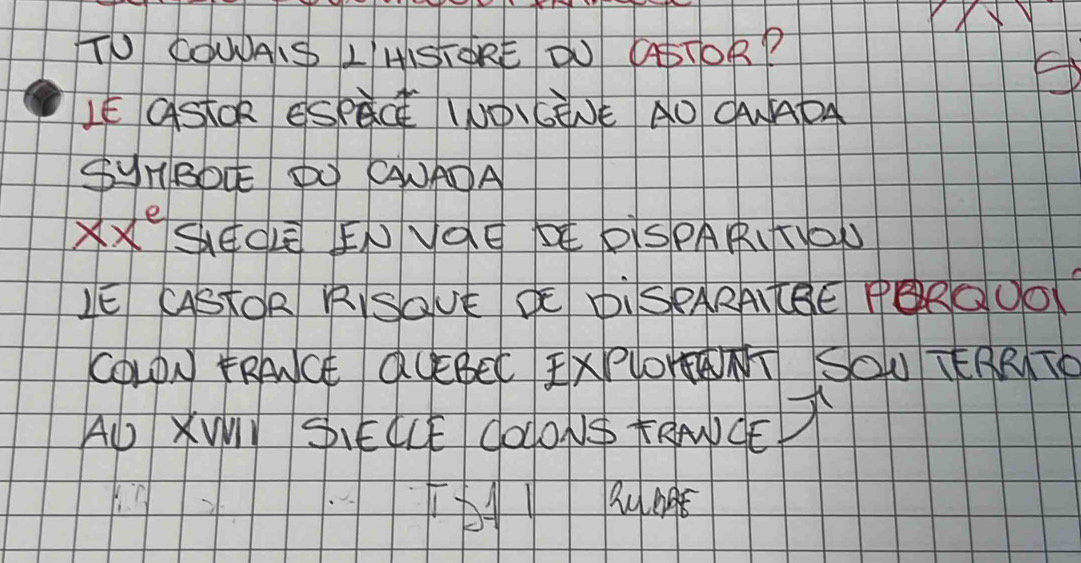 TU CONNAIS L'HISTORE DU CASTOR?
LE CASTOR ESPÈCE INDIGÈNE AU CANADA
SYMBOLE DU CANADA
XXe SIECLE EN VOIE DE DISPARITION
LE CASTOR RISQUE DE DISPARAITRE PORQUOI
COLON FRANCE QUEBEC EXPLOITANT SON TERRITO
AU XVIII SIECLE COLONS FRANCE